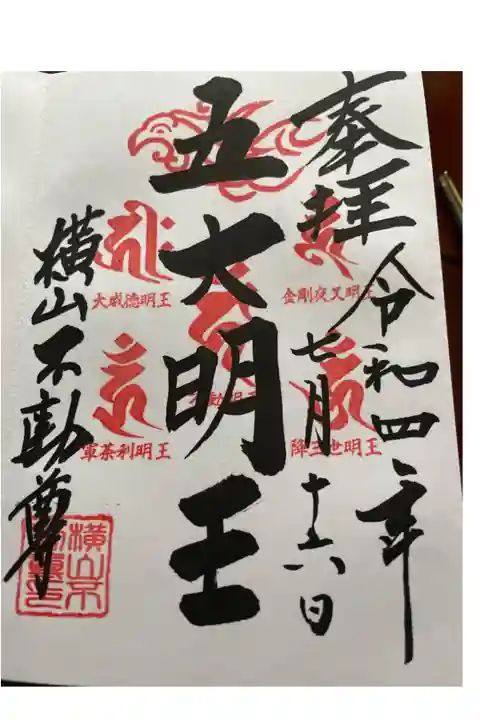 奉拝
令和四年
七月十六日
五大明王
横山不動尊
大威徳明王
金剛夜叉明王
軍荼利明王
降三世明王